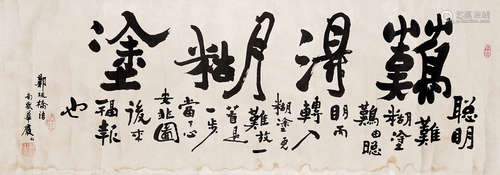 難得糊塗
聰明
難
糊塗
難由聰
明而
轉入
糊塗更
難放一
著退
一步
當下心
安非圖
後來
福報
也
鄭板橋